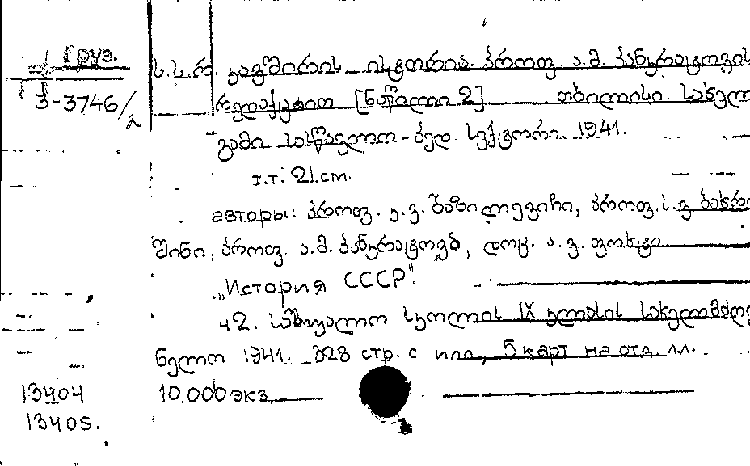 Груз.
З-3746/2
ს.ს.რ. კავშირის ისტორია პროფ. ა.მ. პანკრატოვის
რედაქციით [ნაწილი 2] თბილისი სახელ
გამი სასწავლო-პედ. სექტორი. 1941.
т.т. 21 cm.
авторы: პროფ. კ.ვ. ბაზილევიჩი, პროფ. ს.ვ. ბახრუ
შინი, პროფ. ა.მ. პანკრატოვა, დოც. ა.ვ. ფოხტი
„История СССР".
ч 2. საშუალო სკოლის IX კლასის სახელმძღვა
ნელო 1941. 328 стр. с илл, 5 карт на отд. лл.
13404 10.000 экз
13405.